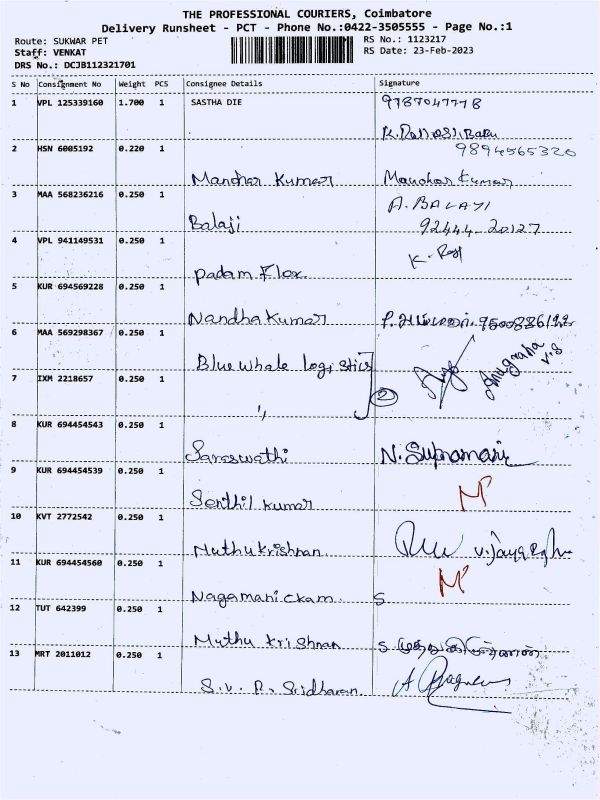 THE PROFESSIONAL COURIERS, Coimbatore
Delivery Runsheet - PCT - Phone No.:0422-3505555 - Page No.:1
Route: SUKWAR PET
RS No.: 1123217
Staff: VENKAT
RS Date: 23-Feb-2023
DRS No.: DCJB112321701
S No Consignment No Weight PCS Consignee Details Signature
1 VPL 125339160 1.700 1 SASTHA DIE 9787047778
2 HSN 6005192 0.220 1 9894565320
Manohar Kumar Manohar Kumar
3 MAA 568236216 0.250 1 A. BALAJI
Balaji 92444-20127
4 VPL 941149531 0.250 1
Padam Flex
5 KUR 694569228 0.250 1
Nandha Kumar
6 MAA 569298367 0.250 1
Blue whale Logistics Anugraha
v.s
7 IXM 2218657 0.250 1 2
"
8 KUR 694454543 0.250 1
Saraswathi
9 KUR 694454539 0.250 1
Senthil Kumar
10 KVT 2772542 0.250 1
Muthukrishnan
11 KUR 694454560 0.250 1
Nagamanickam S
12 TUT 642399 0.250 1
Muthu Krishnan S முத்துகிருஷ்ணன்
13 MRT 2011012 0.250 1
S.V. R. Sridharan